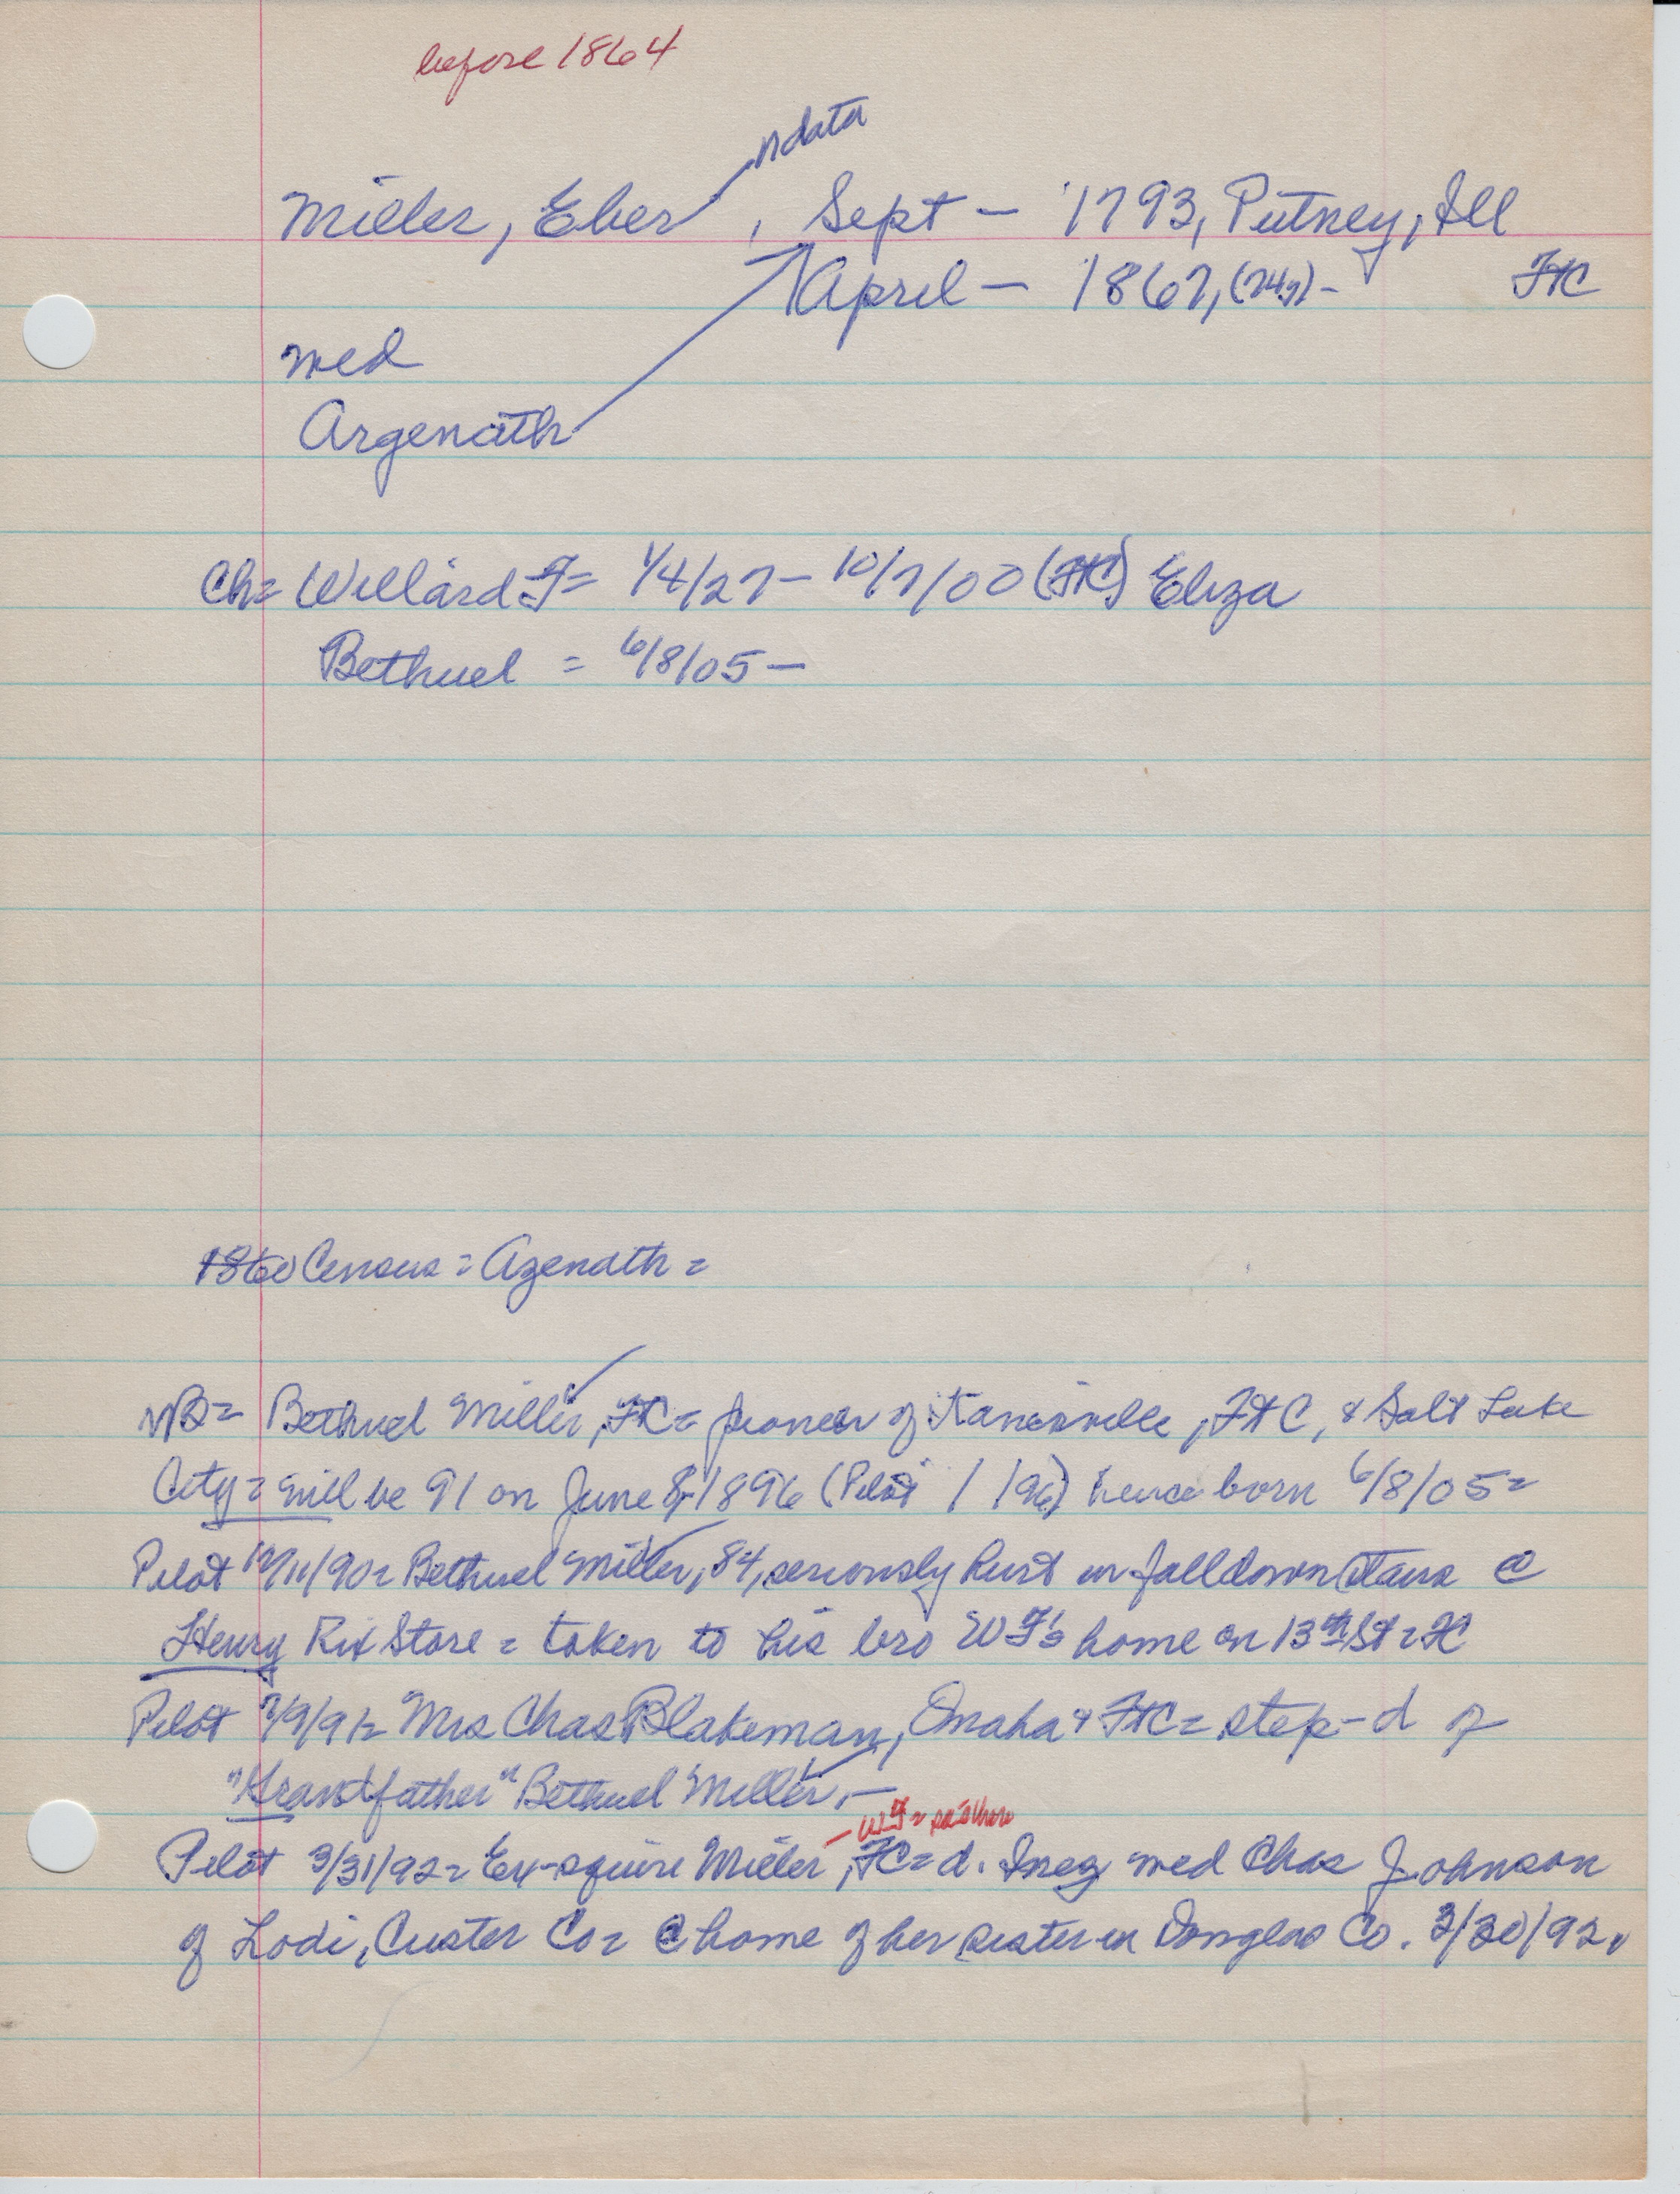 before 1864
ndata
Miller, Eber , Sept - 1793, Putney, Ill
April - 1867, (74y) - FtC
med
Argenath
Ch = Willard F = 1/4/27 - 10/7/00 (FtC) Eliza
Bethuel = 6/8/05 -
1860 Census = Azenath =
Bethuel Miller, FtC = pioneer of Kanesville, FtC, & Salt Lake
City = will be 91 on June 8, 1896 (Pilot / /96) hence born 6/8/05 =
Pilot 12/11/90 = Bethuel Miller, 84, seriously hurt in fall down stairs @
Henry Rix Store = taken to his bro WF's home on 13th St = FC
Pilot 7/9/91 = Mrs Chas Blakeman, Omaha & FtC = step-d of
"Grandfather" Bethuel Miller. -
- WF =
Pilot 3/31/92 = Ex-squire Miller, FC = d. Inez med Chas Johnson
of Lodi, Custer Co = @ home of her sister in Douglas Co. 3/30/92.